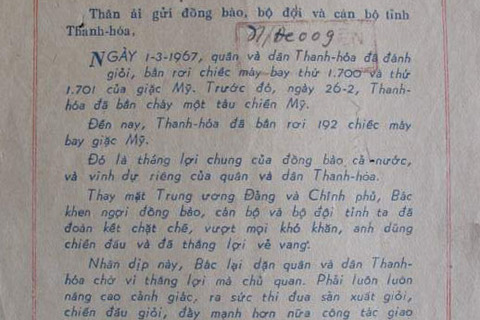 Thân ái gửi đồng bào, bộ đội và cán bộ tỉnh
Thanh-hóa,
NGÀY 1-3-1967, quân và dân Thanh-hóa đã đánh
giỏi, bắn rơi chiếc máy bay thứ 1.700 và thứ
1.701 của giặc Mỹ. Trước đó, ngày 26-2, Thanh-
hóa đã bắn cháy một tàu chiến Mỹ.
Đến nay, Thanh-hóa đã bắn rơi 192 chiếc máy
bay giặc Mỹ.
Đó là thắng lợi chung của đồng bào cả nước,
và vinh dự riêng của quân và dân Thanh-hóa.
Thay mặt Trung ương Đảng và Chính phủ, Bác
khen ngợi đồng bào, cán bộ và bộ đội tỉnh ta đã
đoàn kết chặt chẽ, vượt mọi khó khăn, anh dũng
chiến đấu và đã thắng lợi vẻ vang.
Nhân dịp này, Bác lại dặn quân và dân Thanh-
hóa chớ vì thắng lợi mà chủ quan. Phải luôn luôn
nâng cao cảnh giác, ra sức thi đua sản xuất giỏi,
chiến đấu giỏi, đẩy mạnh hơn nữa công tác giao